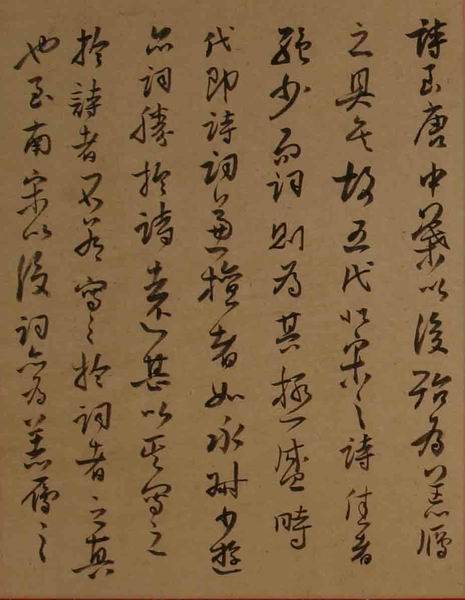 詩至唐中葉以後殆為羔雁
之具矣故五代北宋之詩佳者
絕少而詞則為其極盛時
代即詩詞兼擅者如永叔少游
亦詞勝於詩遠甚以其寫之
於詩者不若寫之於詞者之真
也至南宋以後詞亦為羔雁之